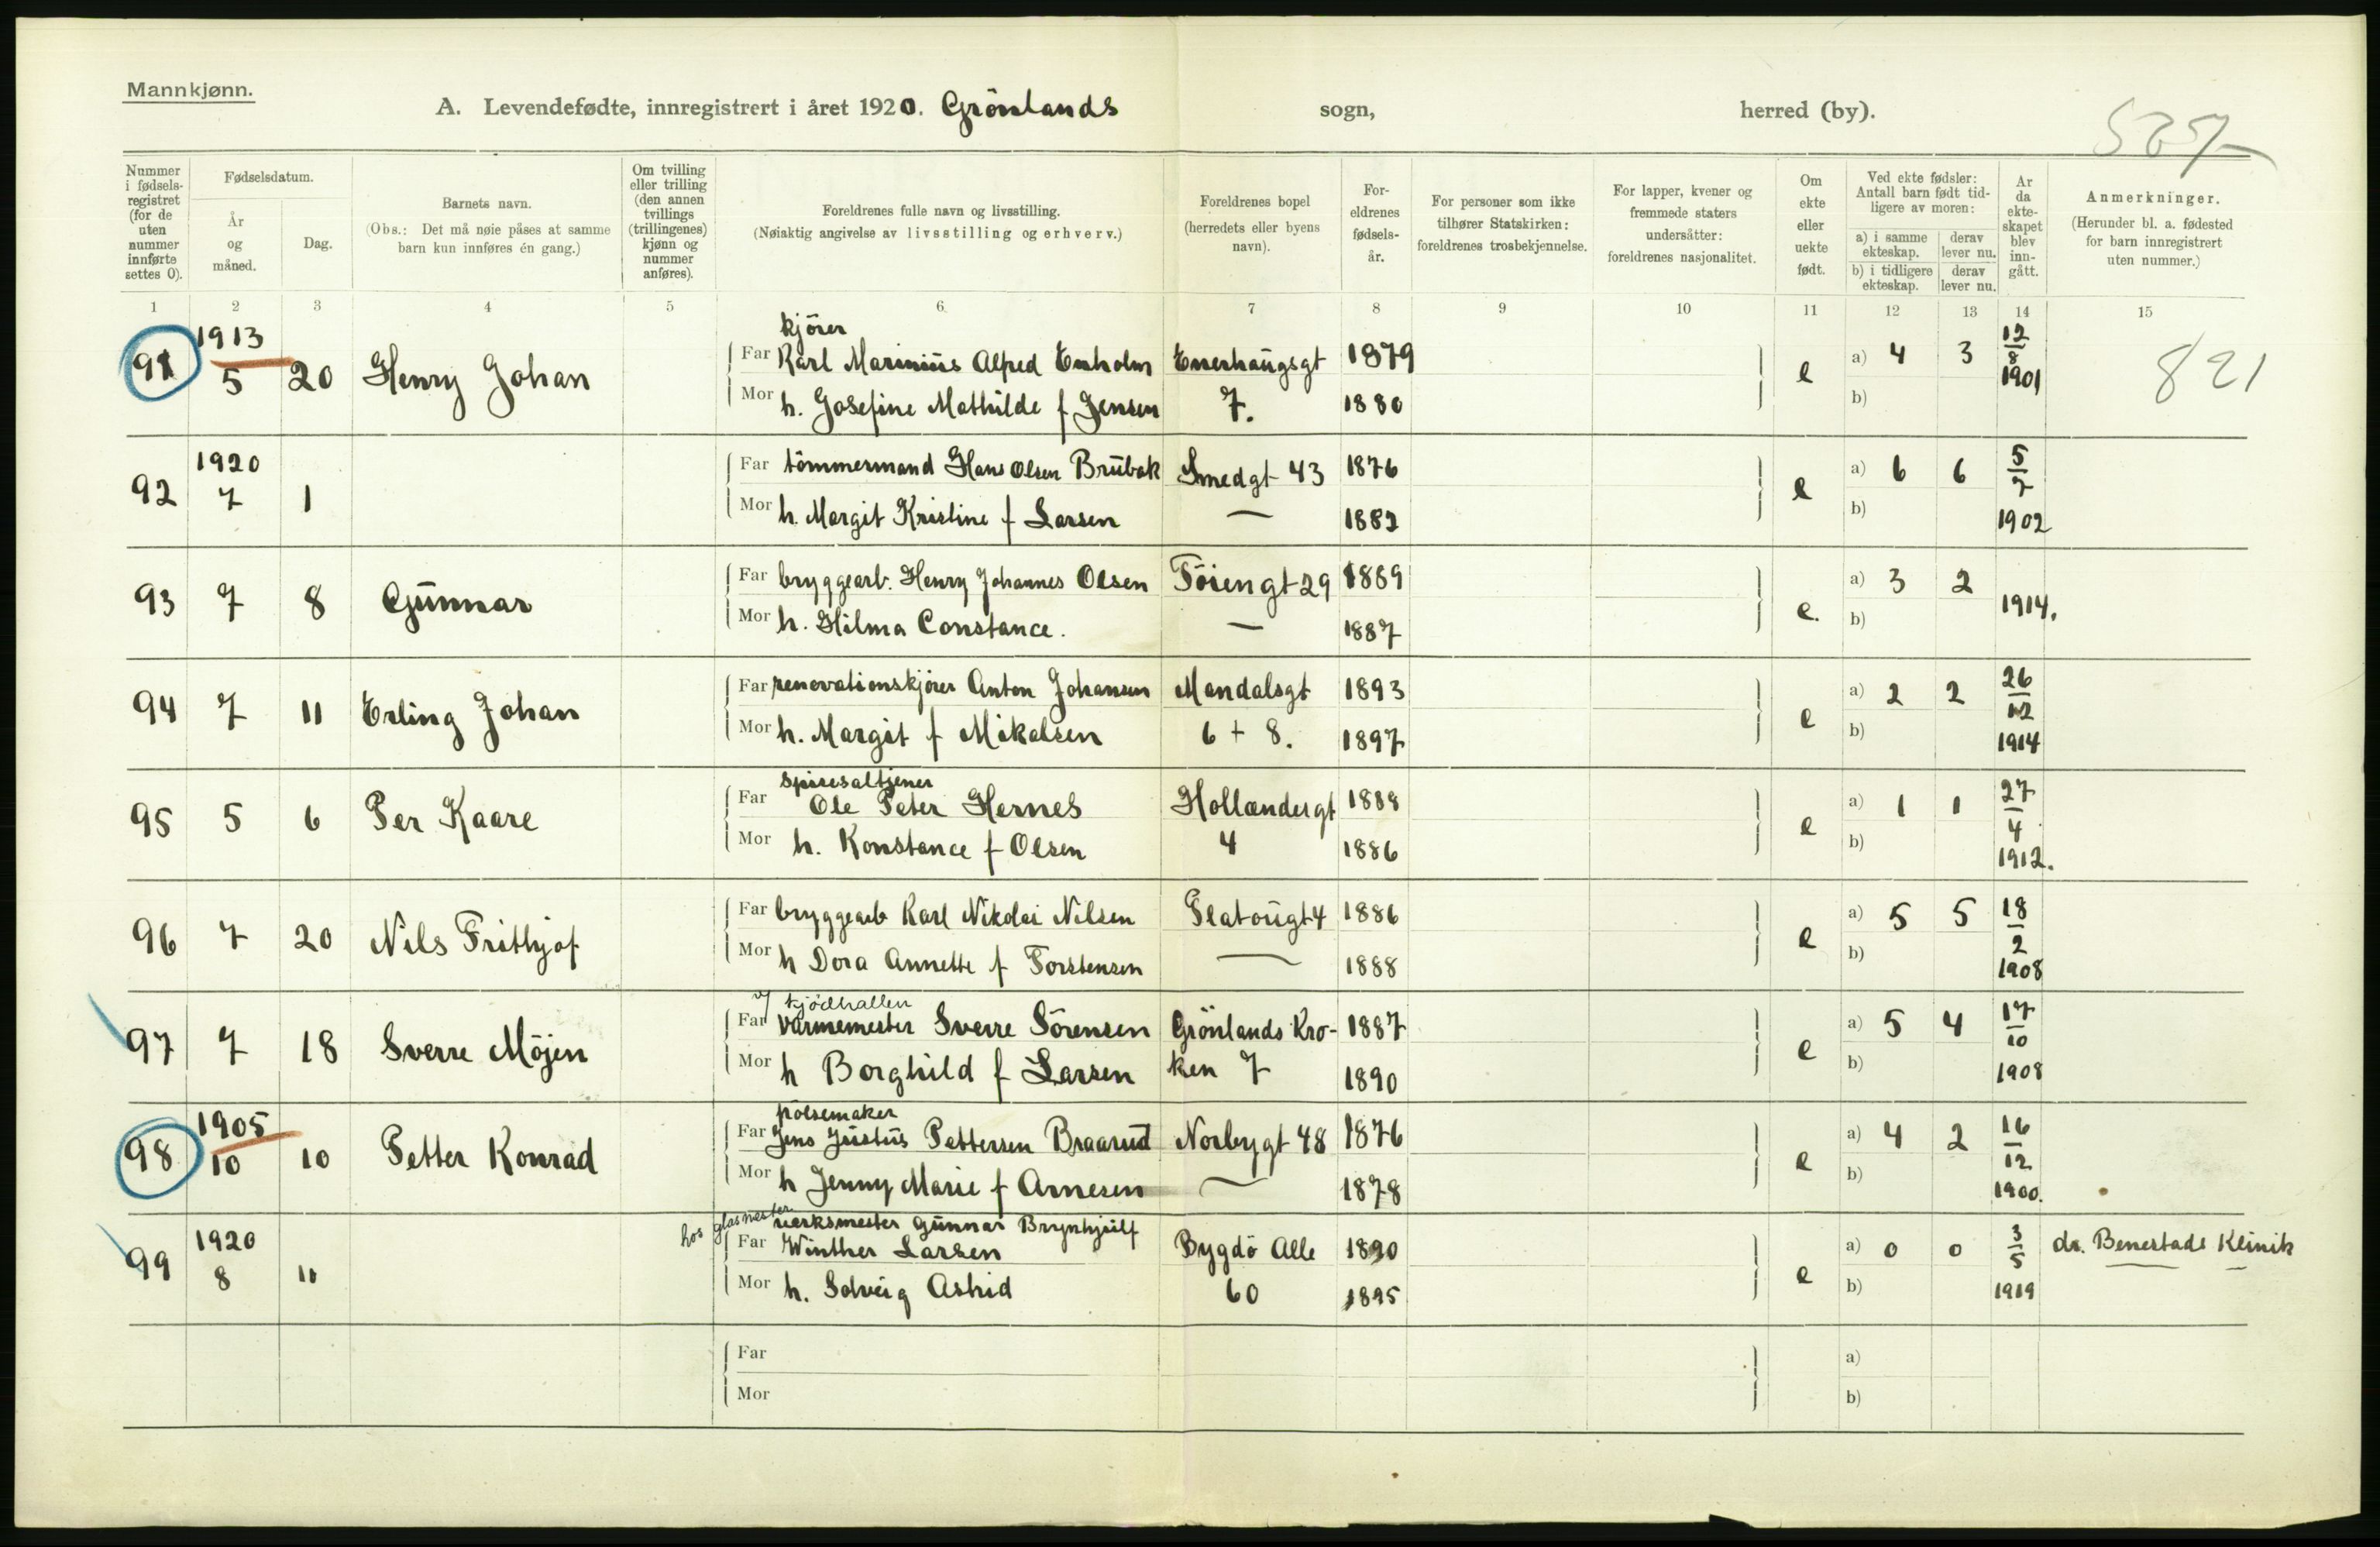 Mannkjønn.
A. Levendefødte, innregistrert i året 1920. Grönlands sogn, herred (by).
Nummer i fødsels-registret (for de uten nummer innførte settes 0).
Fødselsdatum.
År og måned.
Dag.
Barnets navn.
(Obs.: Det må nøie påses at samme barn kun innføres én gang.)
Om tvilling eller trilling (den annen tvillings (trillingenes) kjønn og nummer anføres).
Foreldrenes fulle navn og livsstilling.
(Nøiaktig angivelse av livsstilling og erhverv.)
Foreldrenes bopel
(herredets eller byens navn).
For-eldrenes fødsels-år.
For personer som ikke tilhører Statskirken: foreldrenes trosbekjennelse.
For lapper, kvener og fremmede staters undersåtter: foreldrenes nasjonalitet.
Om ekte eller uekte født.
Ved ekte fødsler: Antall barn født tid-ligere av moren:
a) i samme ekteskap.
derav lever nu.
b) i tidligere ekteskap.
derav lever nu.
Ar da ekte-skapet blev inn-gått.
Anmerkninger.
(Herunder bl. a. fødested for barn innregistrert uten nummer.)
1 2 3 4 5 6 7 8 9 10 11 12 13 14 15
kjörer
91 1913 5 20 Henry Johan Far Karl Marinius Alfred Enholm Enerhaugsgt 1879 e a) 4 3 12/8 1901 821
Mor h. Josefine Mathilde f Jensen 7. 1880 b)
92 1920 7 1 Far tömmermand Hans Olsen Brubak Smedgt 43 1876 e a) 6 6 5/7 1902
Mor h. Margit Kristine f Larsen — 1882 b)
93 7 8 Gunnar Far bryggearb. Henry Johannes Olsen Töiengt 29 1889 e. a) 3 2 1914.
Mor h. Hilma Constance. — 1887 b)
94 7 11 Erling Johan Far renovationskjörer Anton Johansen Mandalsgt 1893 e a) 2 2 26/12 1914
Mor h. Margit f Mikalsen 6 + 8. 1897 b)
spisesaltjener
95 5 6 Per Kaare Far Ole Peter Hernes Hollændergt 1888 e a) 1 1 27/4 1912.
Mor h. Konstance f Olsen 4 1886 b)
96 7 20 Nils Frithjof Far bryggearb Karl Nikolai Nilsen Platougt 4 1886 e a) 5 5 18/2 1908
Mor h Dora Annette f Torstensen — 1888 b)
v/ kjödhallen
97 7 18 Sverre Möjen Far varmemester Sverre Sörensen Grönlands Kro- 1887 e a) 5 4 17/10 1908
Mor h Borghild f Larsen ken 7 1890 b)
pölsemaker
98 1905 10 10 Petter Konrad Far Jens Justus Pettersen Braarud Norbygt 48 1876 e a) 4 2 16/12 1900.
Mor h Jenny Marie f Arnesen — 1878 b)
hos glasmester verksmester Gunnar Brynhjulf
99 1920 8 11 Far Winther Larsen Bygdö Alle 1890 e a) 0 0 3/5 1919 dr. Benestads Klinik
Mor h. Solveig Astrid 60 1895 b)
Far a)
Mor b)